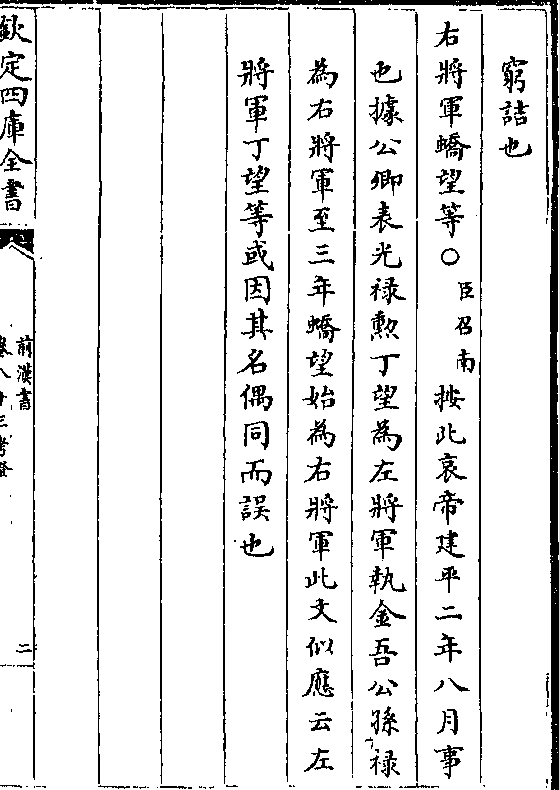 窮詰也
右將軍蟜望等○臣召南按此哀帝建平二年八月事
也據公卿表光祿勲丁望為左將軍執金吾公孫祿
為右將軍至三年蟜望始為右將軍此文似應云左
將軍丁望等或因其名偶同而誤也
欽定四庫全書
前漢書
卷八十三考證
二